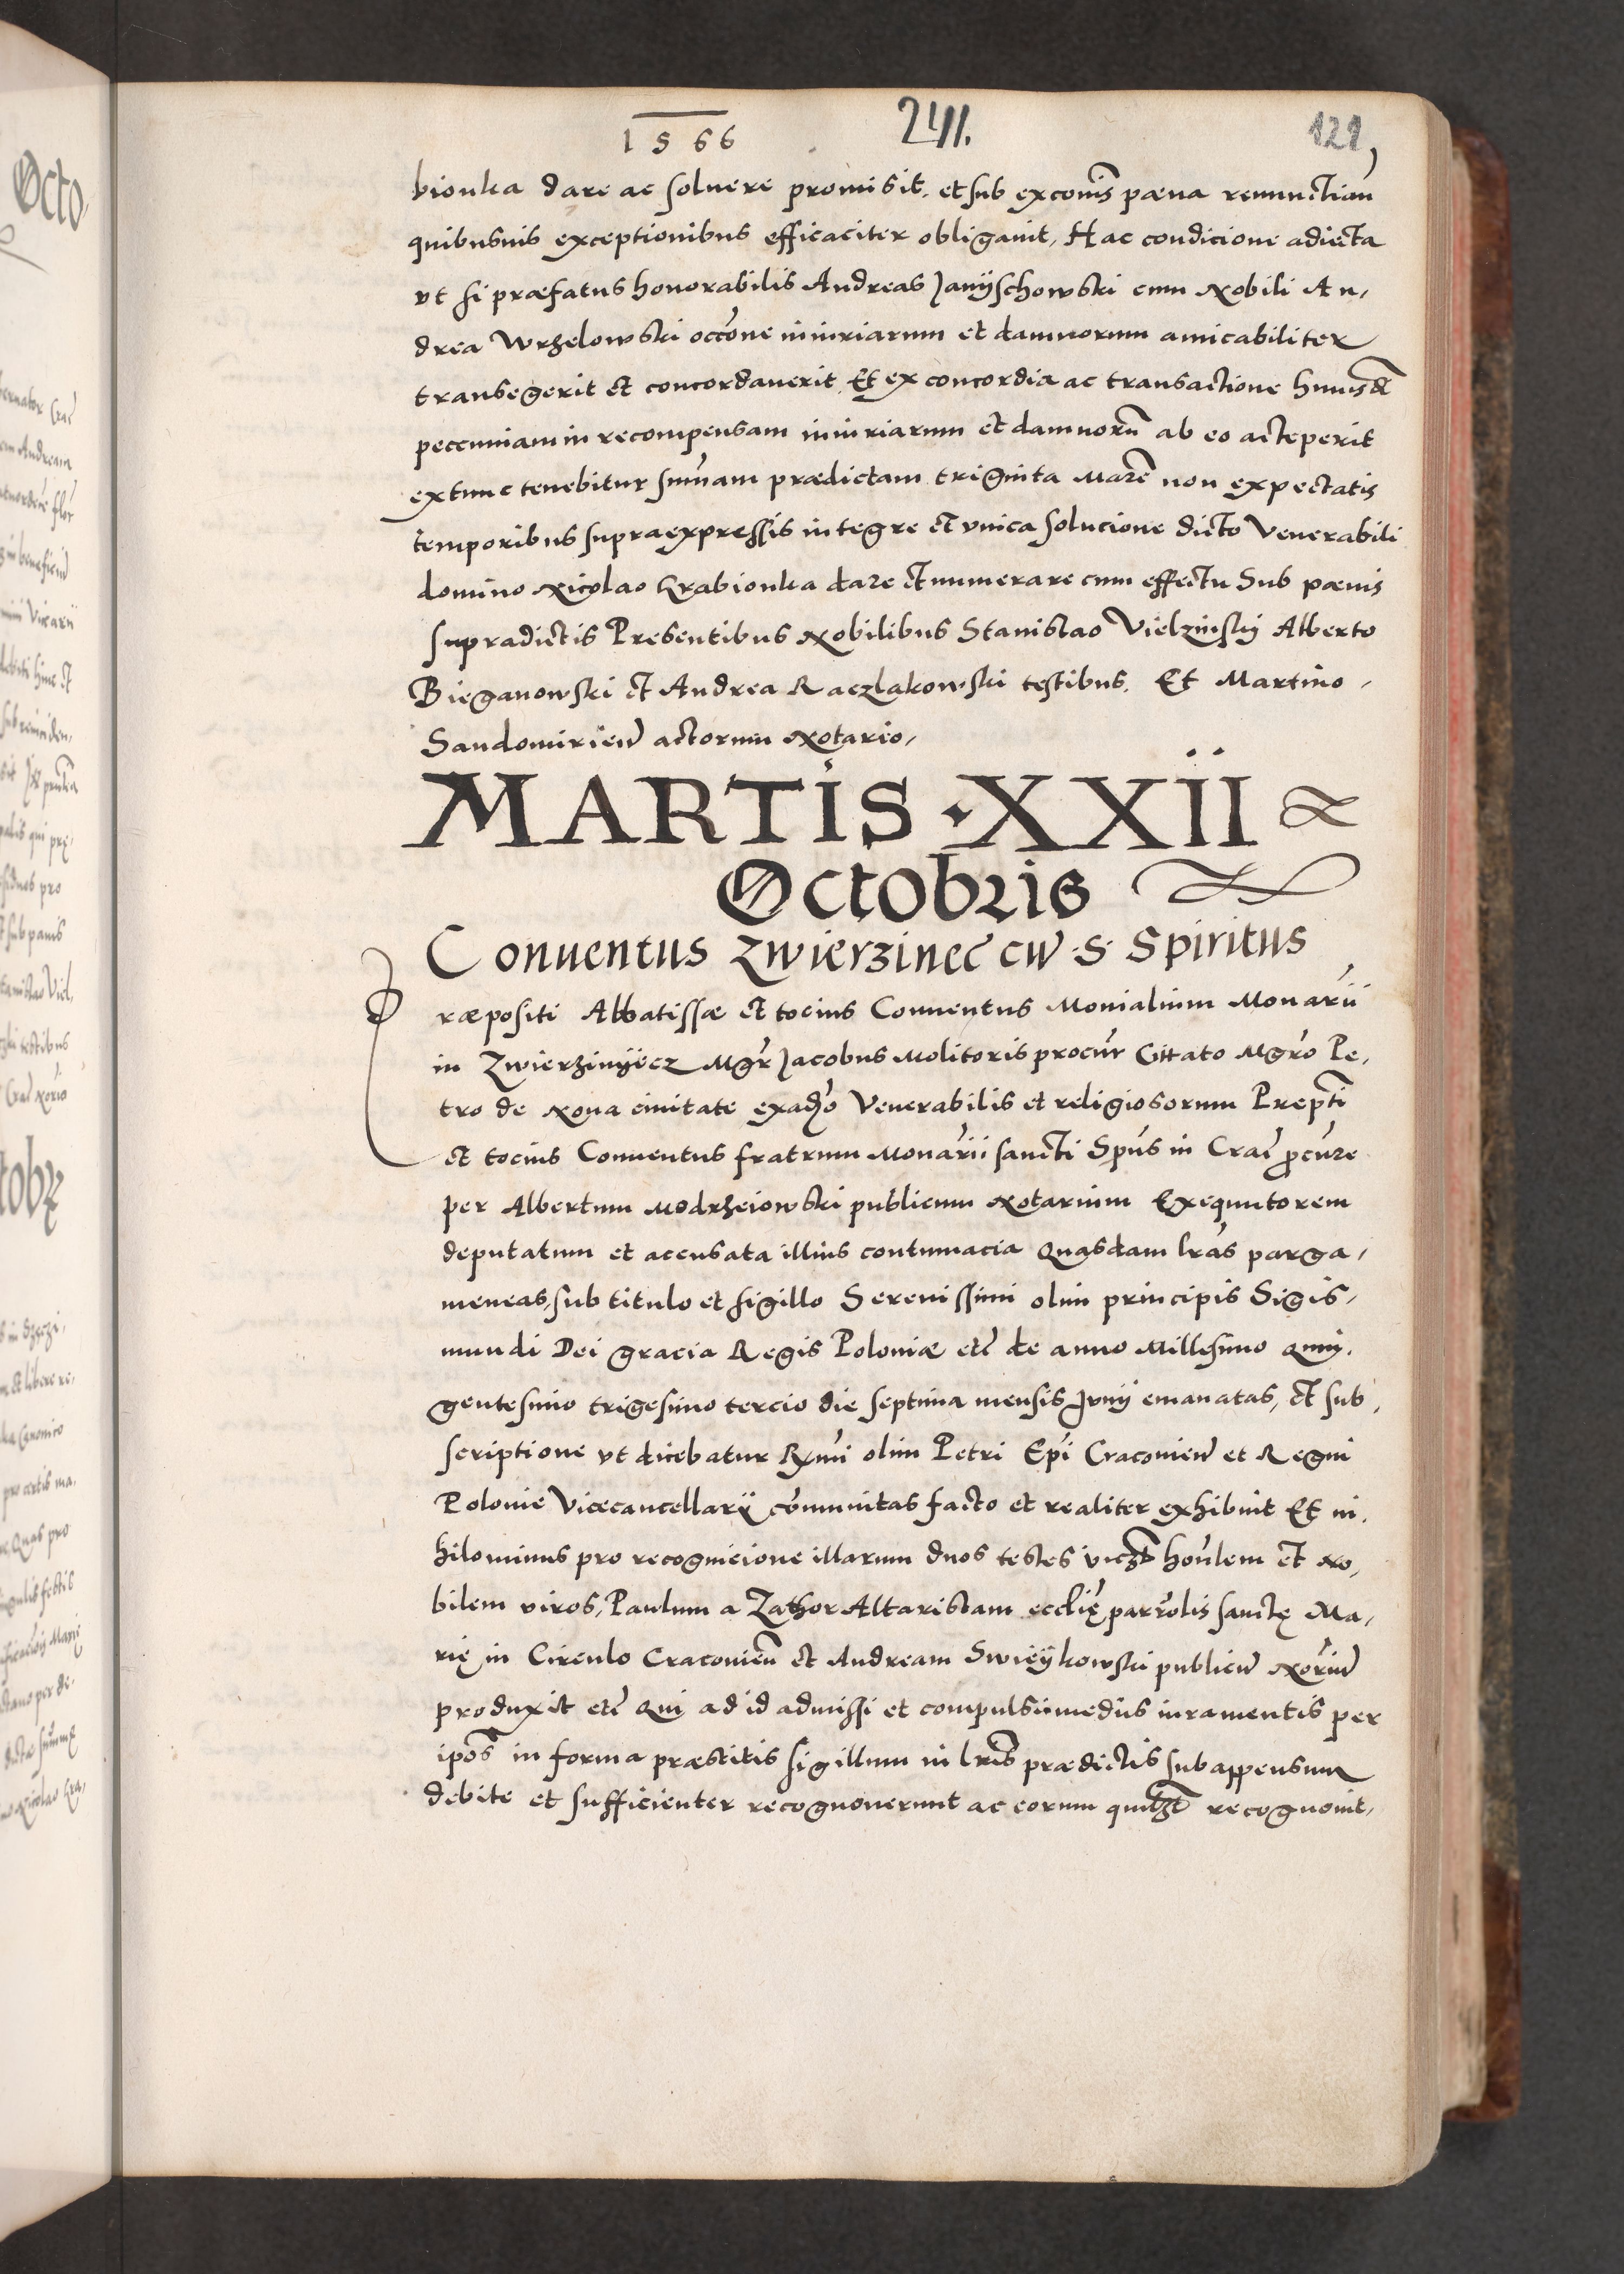 1566
241.
121
bionka dare ac soluere promisit. et sub excōīs pæna renunctiaū
quibusuis exceptionibus efficaciter obligauit, Hac condicione adiecta
vt si præfatus honorabilis Andreas Janÿschowski cum Nobili An,
drea Wrzelowski occōne iniuriarum et damnorum amicabiliter
transegerit et concordauerit Et ex concordia ac transactione huiusd
peccuniam in recompensam iniuriarum et damnorū ab eo acceperit
extunc tenebitur sum̄am prædictam triginta Marc̄ non expectatis
temporibus supraexpressis integre et vnica solucione dicto Venerabili
domino Nicolao Krabionka dare et numerare cum effectu Sub pænis
supradictis Presentibus Nobilibus Stanislao Vielzinskj Alberto
Bieganowski et Andrea Raczlakowski testibus. Et Martino,
Sandomirieñ actorum Notario,
MARTIS·XXII
Octobris
Conuentus Zwierzinec̄ cū S. Spiritus
Præpositi Abbatissæ et tocius Conuentus Monialium Monar̄ii
in Zwierzinÿecz Mgr̄ Jacobus Molitoris procūr Cittato Mgrō Pe,
tro de Noua ciuitate exadꝫo Venerabilis et religiosorum Prep̄ti
et tocius Conuentus fratrum Monar̄ii sancti Sp̄us in Crac̄ p̄cūre
per Albertum Modrzeiowski publicum Notarium Exequutorem
deputatum et accusata illius contumacia Quasdam lrās parga,
meneas, sub titulo et sigillo Serenissimi olim principis Sigis,
mundi Dei gracia Regis Poloniæ etc̄ de anno Millesimo Quin,
gentesimo trigesimo tercio die septima mensis Junij emanatas, et sub,
scriptione vt dicebatur Rm̄i olim Petri Ep̄i Cracovieñ et Regni
Polonie Vicecancellarÿ com̄unitas facto et realiter exhibuit Et ni,
hilominus pro recognicione illarum duos testes vicꝫt honīlem et No,
bilem viros, Paulum a Zathor Altaristam eccliȩ parrōlis sanctȩ Ma,
riȩ in Circulo Cracovieñ et Andream Swieÿkowski publicū Norīū
produxit etc̄ Qui ad id admissi et compulsi medijs iuramentis per
ipōs in forma præstitis sigillum in lrīs prædictis subappensum
debite et sufficienter recognouerunt ac eorum quilꝫt recognouit,